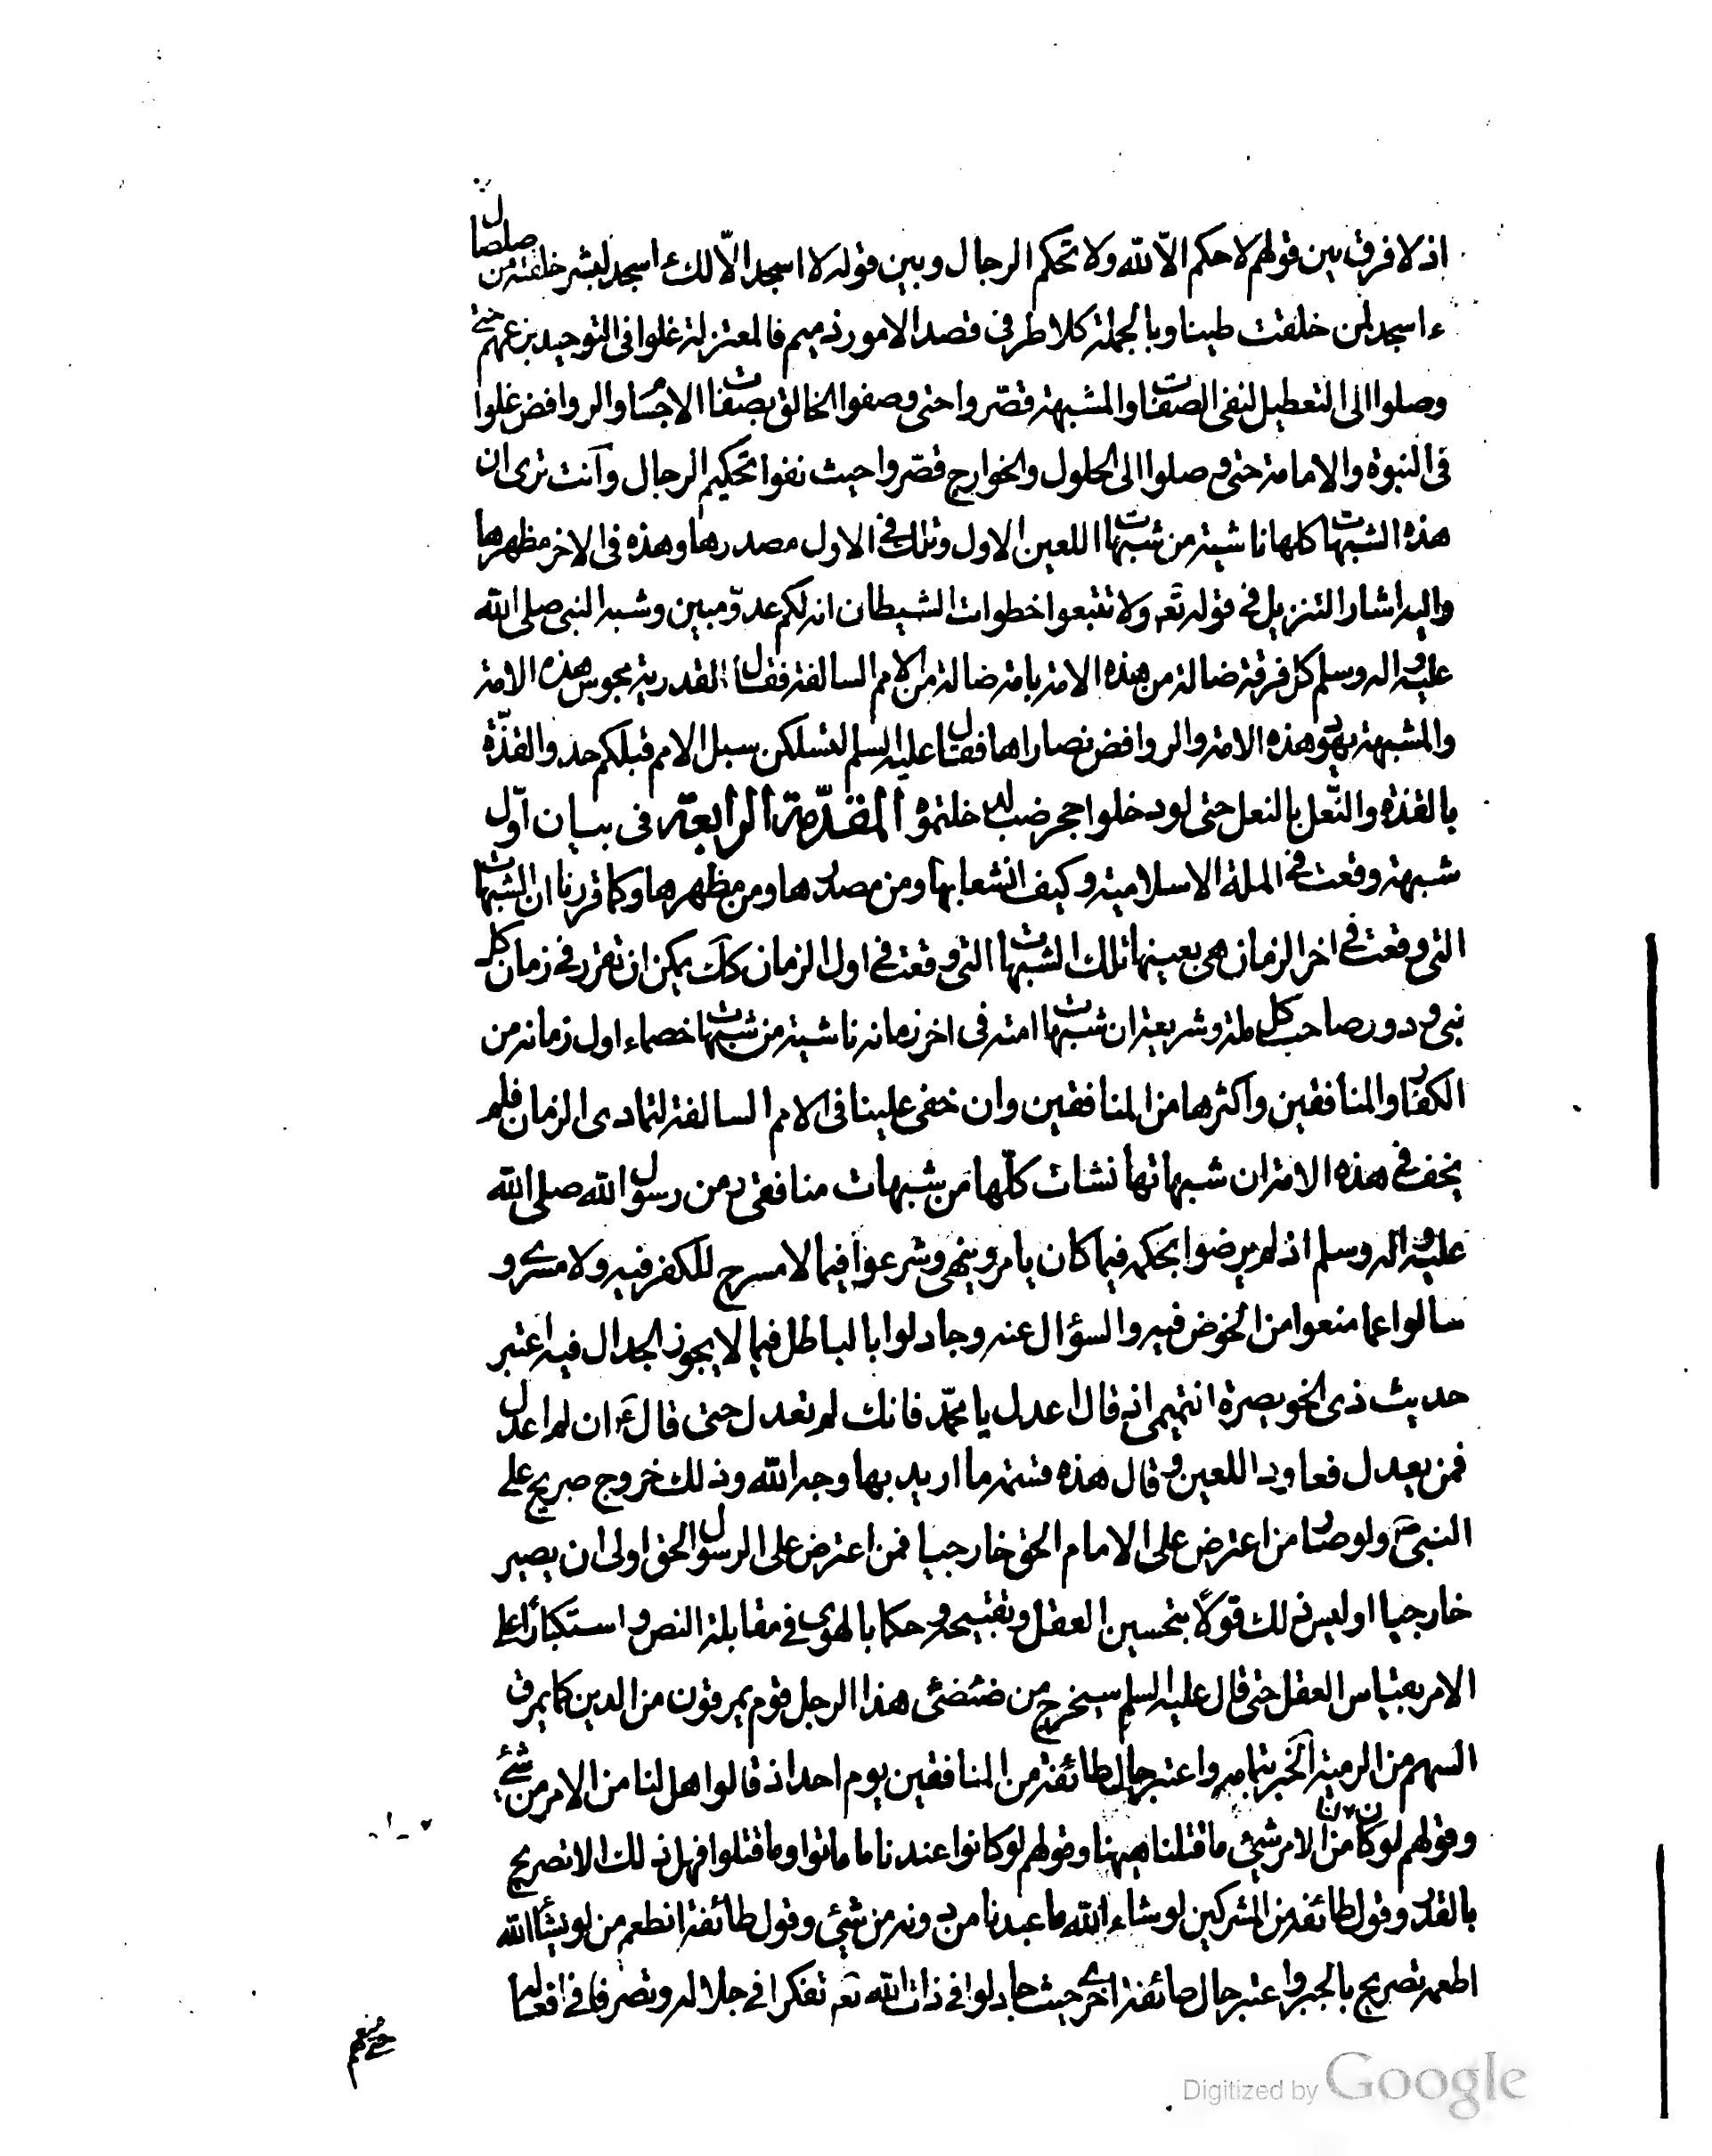 اذ لا فرق بين قولهم لا حكم الّا لله ولا تحكم الرجال وبين قوله لا اسجد الّا لك ءاسجد لبشر خلقته من صلصال
ءاسجد لمن خلقت طينا وبالجملة كلا طرفى قصد الامور ذميم فالمعتزلة غلوا فى التوحيد بزعمهم حتى
وصلوا الى التعطيل لنفى الصفات والمشبهة قصّروا حتى وصفوا الخالق بصفات الاجسام والروافض غلوا
فى النبوة والامامة حتى وصلوا الى الحلول والخوارج قصّروا حيث نفوا تحكيم الرجال وانت ترى ان
هذه الشبهات كلها ناشية من شبهات اللعين الاول وتلك فى الاول مصدرها وهذه فى الاخر مظهرها
واليه اشار التنزيل فى قوله تعه ولا تتبعوا خطوات الشيطان انه لكم عدوّ مبين وشبه النبى صلى الله
عليه واله وسلم كل فرقة ضالة من هذه الامة بامة ضالة من الامم السالفة فقال القدرية مجوس هذه الامة
والمشبهة يهود هذه الامة والروافض نصاراها فقال عليه السلم لتسلكن سبل الامم قبلكم حذو القذّة
بالقذة والنّعل بالنعل حتى لو دخلوا جحر ضب لدخلتموه المقدّمة الرابعة فى بيان اوّل
شبهة وقعت فى الملة الاسلامية وكيف انشعابها ومن مصدرها ومن مظهرها وكما قررنا ان الشبهات
التى وقعت فى اخر الزمان هى بعينها تلك الشبهات التى وقعت فى اول الزمان كك يمكن ان نقرر فى زمان كل
نبى ودور صاحب كل ملة وشريعة ان شبهات امته فى اخر زمانه ناشية من شبهات خصماء اول زمانه من
الكفار والمنافقين واكثرها من المنافقين وان خفى علينا فى الامم السالفة لتمادى الزمان فلم
يخف فى هذه الامة ان شبهاتها نشات كلّها من شبهات منافقى زمن رسول الله صلى الله
عليه واله وسلم اذ لم يرضوا بحكمه فيما كان يامر وينهى وشرعوا فيما لا مسرح للكفر فيه ولا مسرى و
سالوا عما منعوا من الخوض فيه والسؤال عنه وجادلوا بالباطل فيما لا يجوز الجدال فيه اعتبر
حديث ذى الخويصرة التميمى اذ قال اعدل يا محمّد فانك لم تعدل حتى قال ع ان لم اعدل
فمن يعدل فعاود اللعين وقال هذه قسمة ما اريد بها وجه الله وذلك خروج صريح على
النبى ص ولو صار من اعترض على الامام الحق خارجيا فمن اعترض على الرسول الحق اولى ان يصير
خارجيا اوليس ذلك قولاً بتحسين العقل وتقبيحه وحكما بالهوى فى مقابلة النص واستكبارا على
الامر بقياس العقل حتى قال عليه السلم سيخرج من ضئضئ هذا الرجل قوم يمرقون من الدين كما يمرق
السهم من الرمية الخبر بتمامه واعتبر حال طائفة من المنافقين يوم احد اذ قالوا هل لنا من الامر من شئ
وقولهم لو كان لنا من الامر شئ ما قتلنا ههنا وقولهم لو كانوا عندنا ما ماتوا وما قتلوا فهل ذلك الا تصريح
بالقدر وقول طائفة من المشركين لو شاء الله ما عبدنا من دونه من شئ وقول طائفة انطعم من لو يشأ الله
اطعمه تصريح بالجبر واعتبر حال طائفة اخرى حيث جادلوا فى ذات الله تعه تفكرا فى جلاله وتصرفا فى افعاله
حتى منعهم